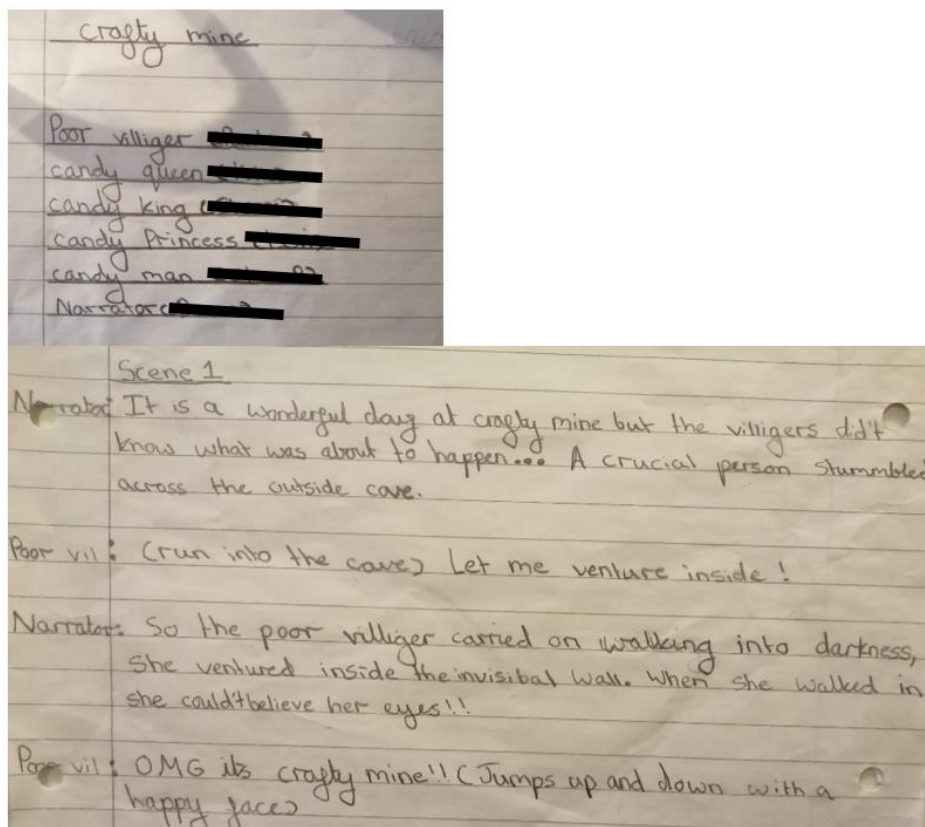 crafty mine
Poor villiger
candy queen
candy king
candy Princess
candy man
Narrator
Scene 1
Narrator: It is a wonderful day at crafty mine but the villigers did't
know what was about to happen... A crucial person stummbled
across the outside cave.
Poor vil: (run into the cave) Let me venture inside!
Narrator: So the poor villiger carried on walking into darkness,
She ventured inside the invisibal wall. When she walked in
she could't believe her eyes!!
Poor vil: OMG its crafty mine!! (Jumps up and down with a
happy face)